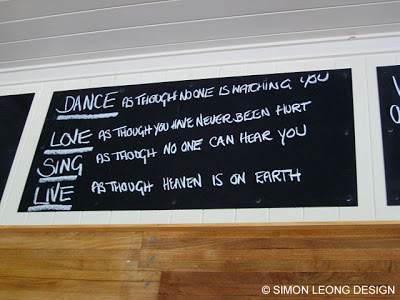 DANCE AS THOUGH NO ONE IS WATCHING YOU
LOVE AS THOUGH YOU HAVE NEVER BEEN HURT
SING AS THOUGH NO ONE CAN HEAR YOU
LIVE AS THOUGH HEAVEN IS ON EARTH
© SIMON LEONG DESIGN